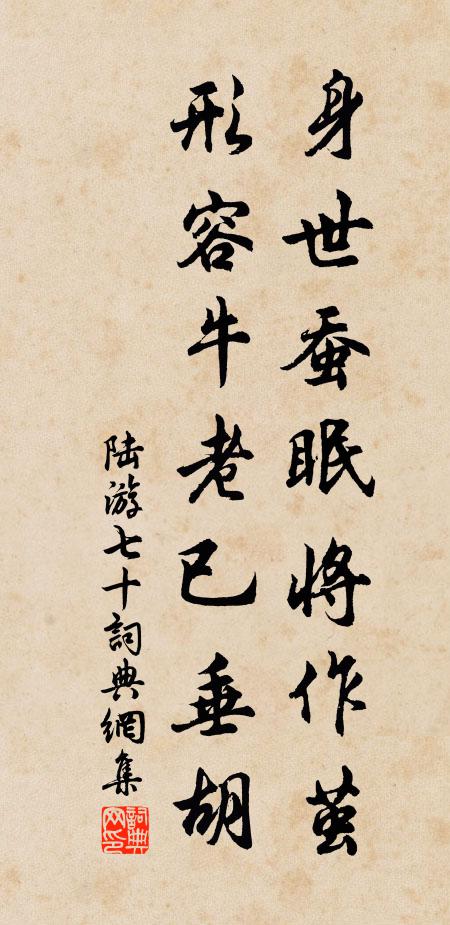 身世蚕眠将作茧
形容牛老已垂胡
陆游七十詞典網集
詞典網印